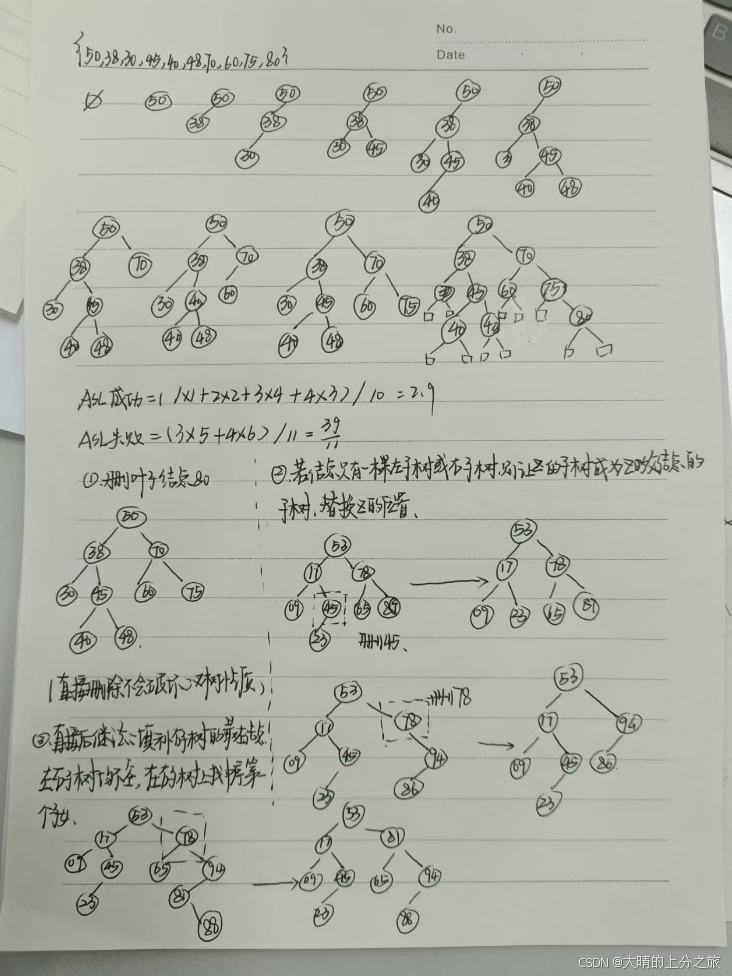 No.
Date
{50,38,30,45,40,48,70,60,75,80}
∅ 50 50 50 50 50 50
38 38 38 38 38
30 30 45 30 45 3 45
40 40 48
50 50 50 50
38 70 38 70 38 70 38 70
30 45 30 40 60 30 45 60 75 30 45 60 75
40 48 40 48 40 48 40 48 80
ASL成功=(1×1+2×2+3×4+4×3)/10=2.9
ASL失败=(3×5+4×6)/11=39/11
①.删叶子结点80
②.若结点只有一棵左子树或右子树,则让Z的子树成为Z的父结点的
子树、替换Z的位置、
50 53 53
38 70 17 78 17 78
30 45 60 75 09 45 65 87 09 23 65 87
40 48 23 删45、
(直接删除不会破坏二叉树性质)
53 删78 53
17 78 17 94
09 45 94 09 45 86
23 86 23
③.直接后继法
在右子树上找中序第一
个子女.
53 53
17 78 17 81
09 45 65 94 09 45 65 94
23 81 23 88
88
CSDN @大晴的上分之旅